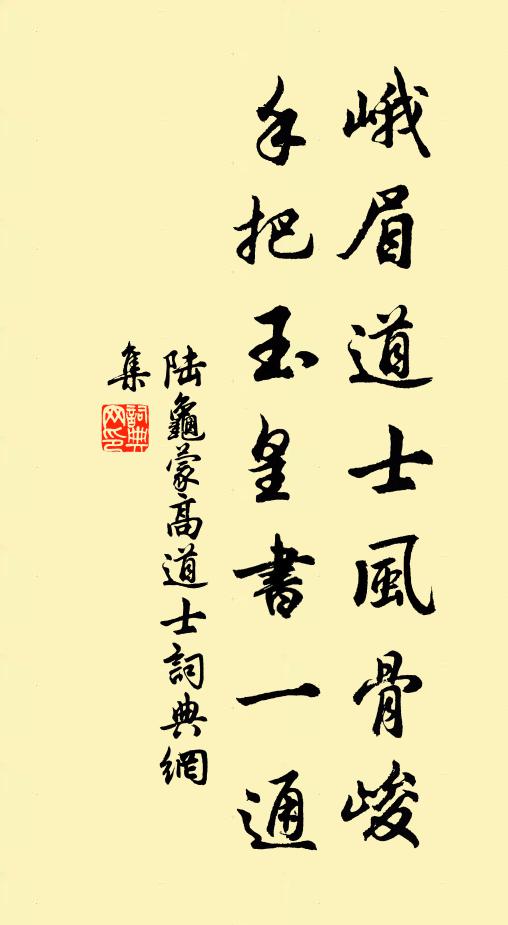 峨眉道士風骨峻
手把玉皇書一通
陸龜蒙高道士詞典網
集
詞典
网印